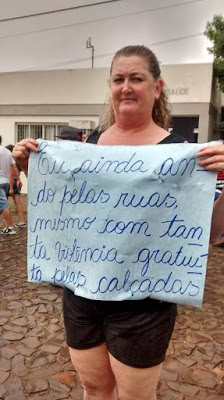 SAÚDE
Eu ainda an-
do pelas ruas,
mesmo com tan-
ta violência gratui-
ta pelas calçadas